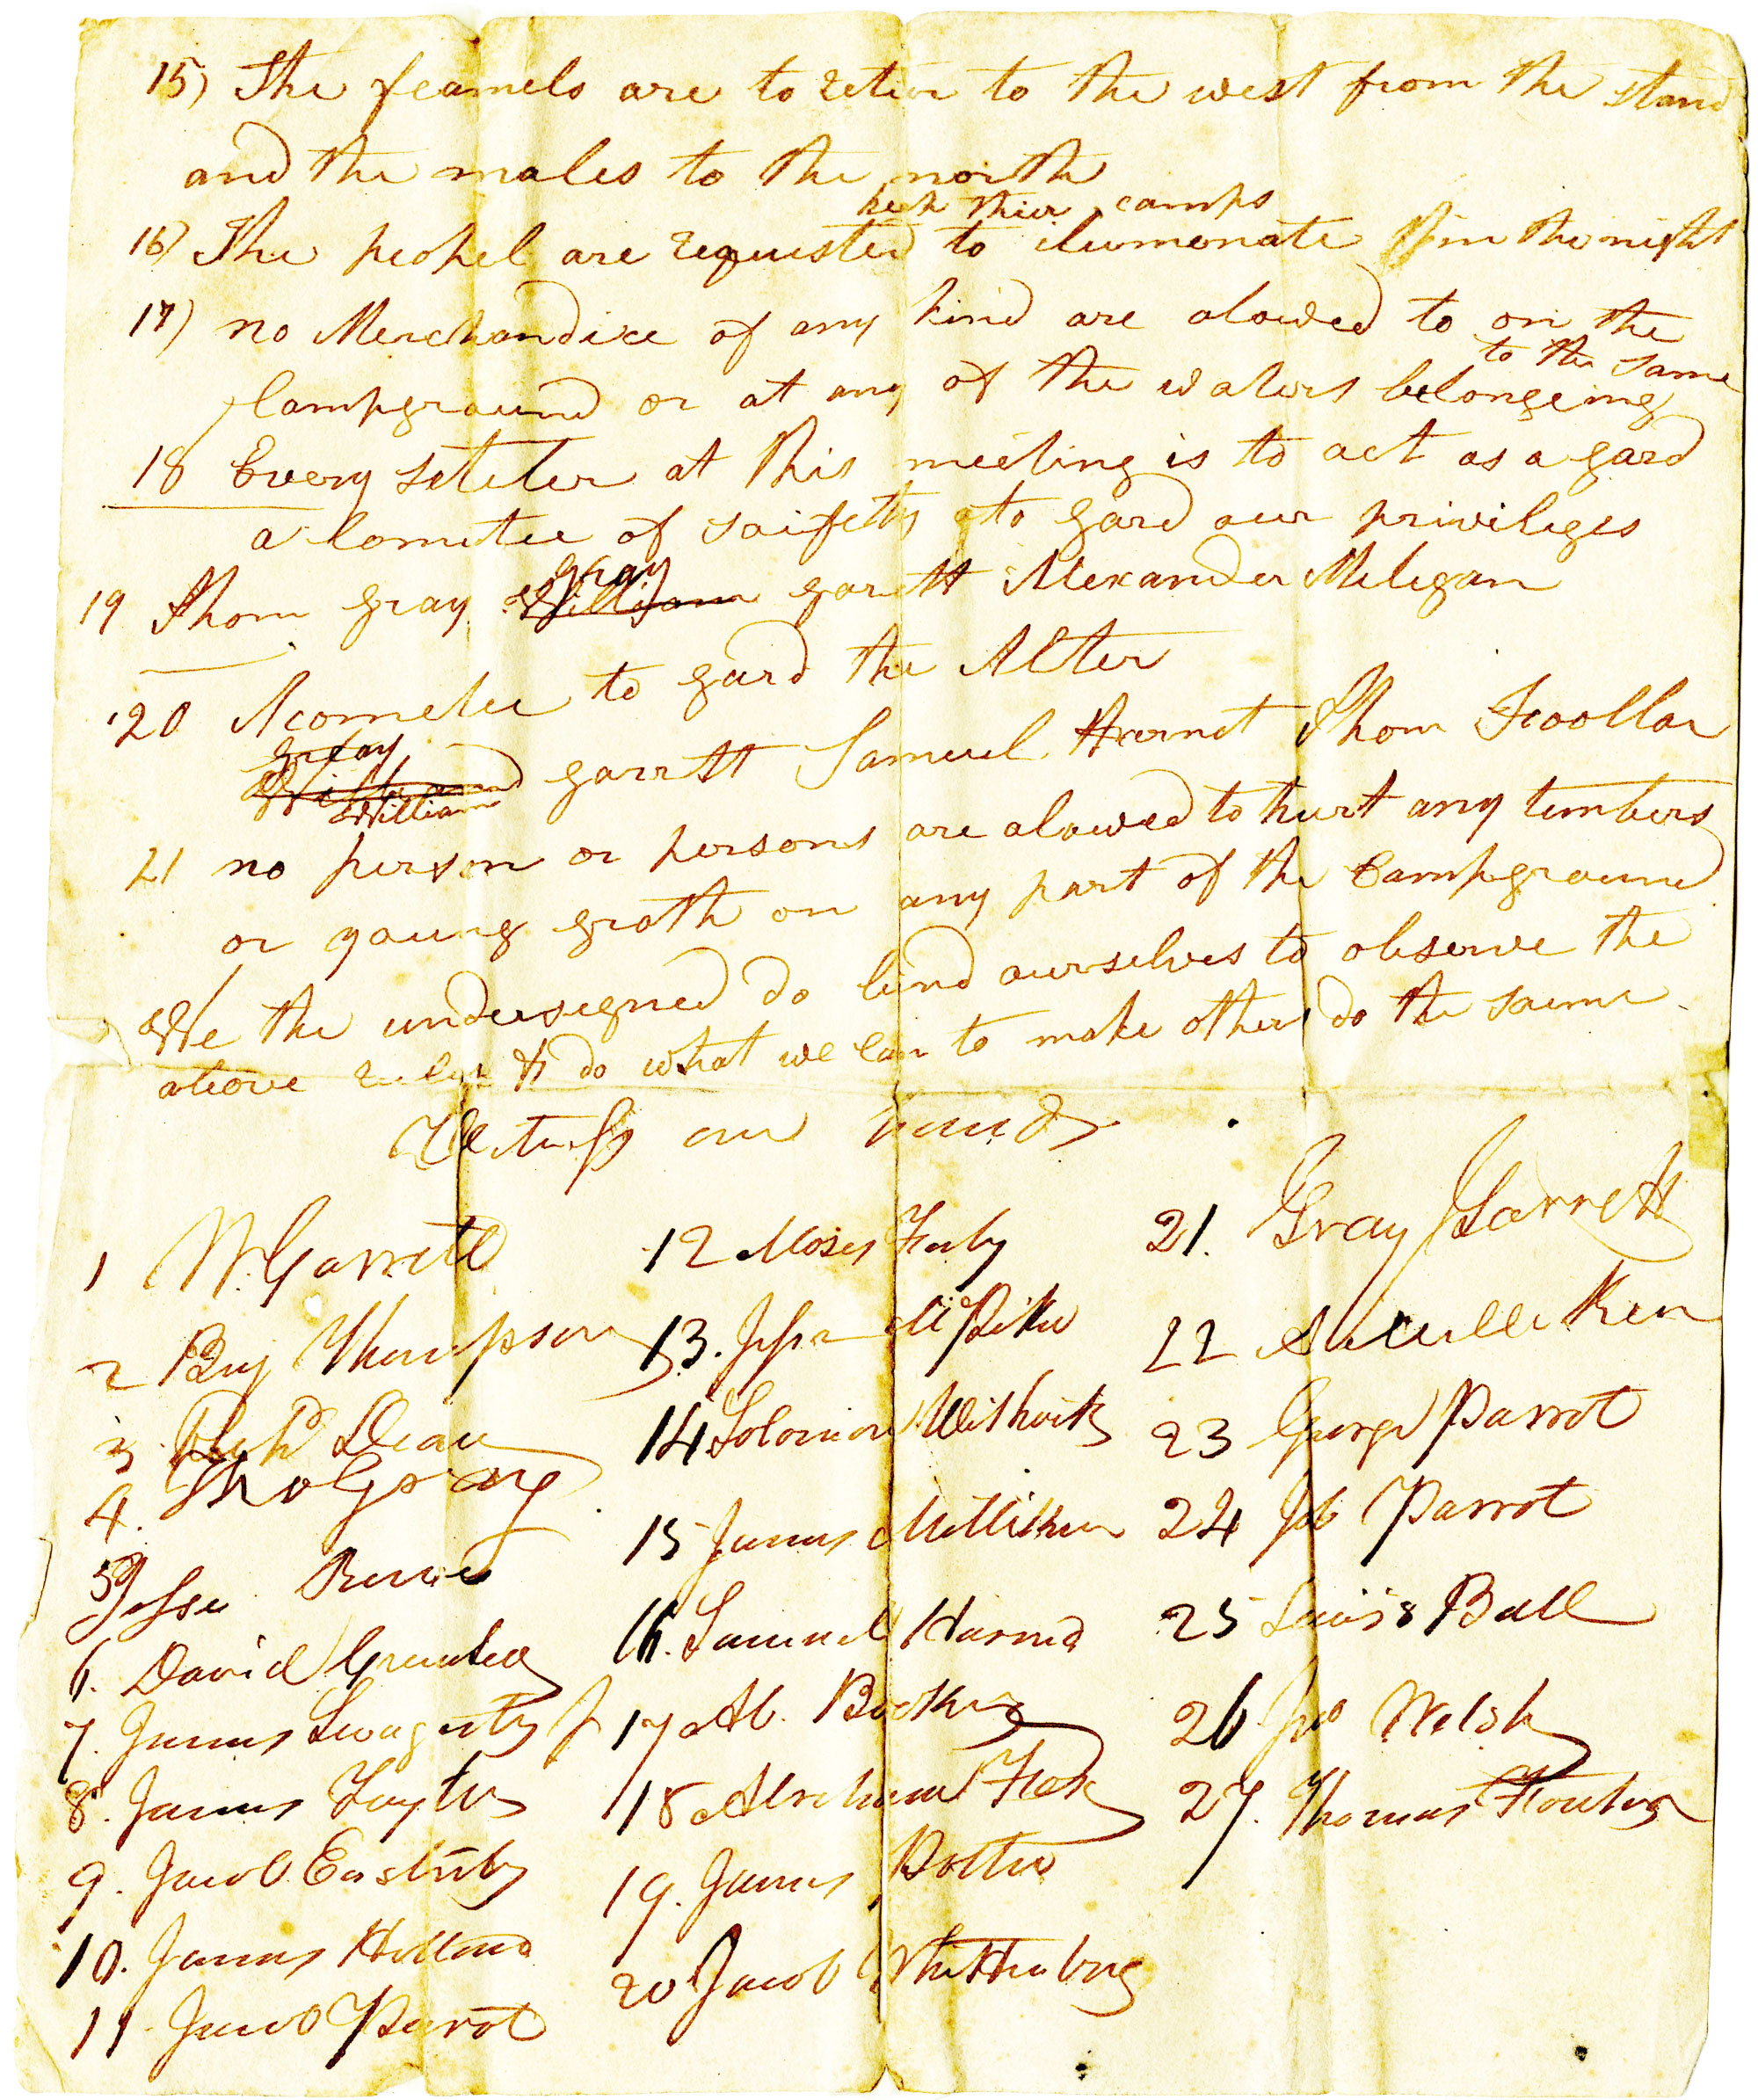 15) The feamels are to retier to the west from the stand
and the males to the north
keep thier camps
16) The peopel are requested to ilumenate in the night
17) no Merchandixe of any kind are alowed to on the
to the same
Campground or at any of the waters belongeing
18 Every seteler at this meeting is to act as a gard
a Comitee of saifetty to gard our privileges
gray
19 Thom gray William garett Alexander Miligan
20 A cometee to gard the Alter
gray
William garrett Samuel Thom
William
21 no person or persons are alowed to hurt any timbers
or young groth on any part of the Campground
We the undersigned do bind ourselves to observe the
above rules & do what we can to make others do the same
Witness our hands
1 W. Garrett
2 Thompson
3 Dean
4. Tho Gray
5 Jesse
6. David
7. James Swagerty
8. James Taylor
9. Jacob
10. James Holland
11. Jacob Parrot
12 Moses
13.
14 Solomon
15 James Milliken
16. Samuel
17 Ab.
18 Abraham
19. James Potter
20 Jacob Whittenberg
21. Gray Garrett
22
23 George Parrot
24 Job Parrot
25 Lewis Ball
26 Jno Welsh
27. Thomas